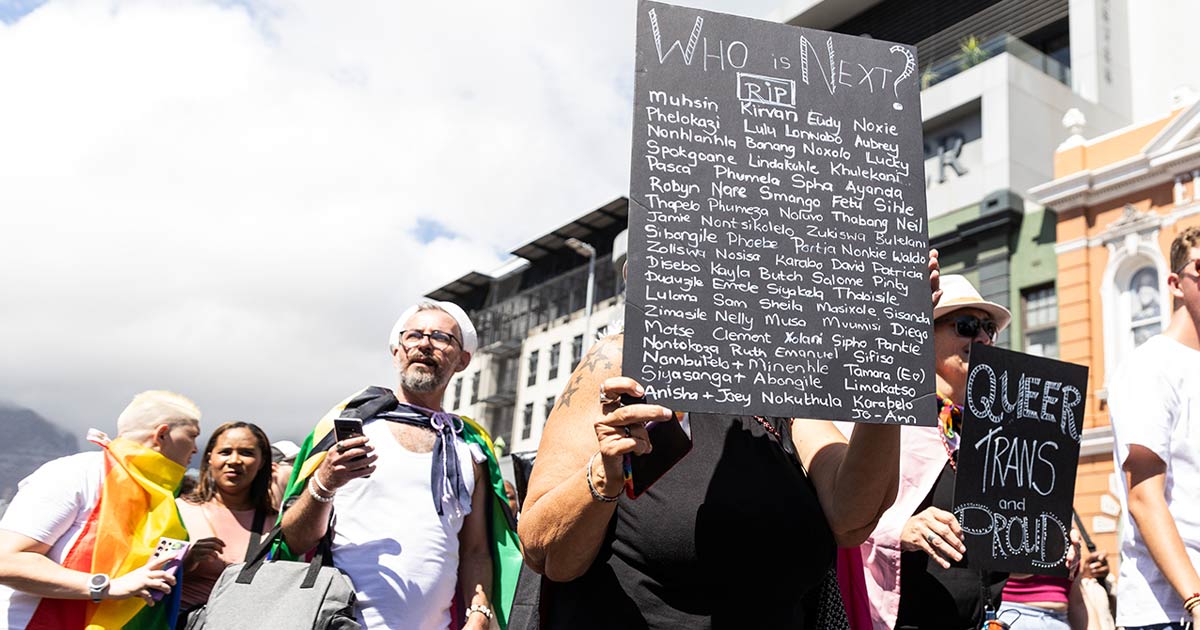 WHO is NEXT?
RIP
Muhsin Kirvan Eudy Noxie
Phelokazi Lulu Lonwabo Aubrey
Nonhlanhla Banang Noxolo Lucky
Spokgoane Lindakuhle Khulekani
Pasca Phumela Spha Ayanda
Robyn Nare Smango Fetu Sihle
Thapelo Phumeza Nofuvo Thabang Neil
Jamie Nontsikolelo Zukiswa Bulelani
Sibangile Phoebe Portia Nonkie Waldo
Zoliswa Nosisa Karabo David Patricia
Disebo Kayla Butch Salome Pinky
Dudugile Emele Siyakela Thabisile
Lulama Sam Sheila Masixole Sisanda
Zimasile Nelly Musa Mvumisi Diego
Motse Clement Xolani Sipho Pontie
Nontokoza Ruth Emanuel Sifiso
Nambulelo + Minenhle Tamara (E♡)
Siyasanga + Abongile Limakatso
Anisha + Joey Nokuthula Karabelo
Jo-Ann
QUEER,
TRANS
and
PROUD